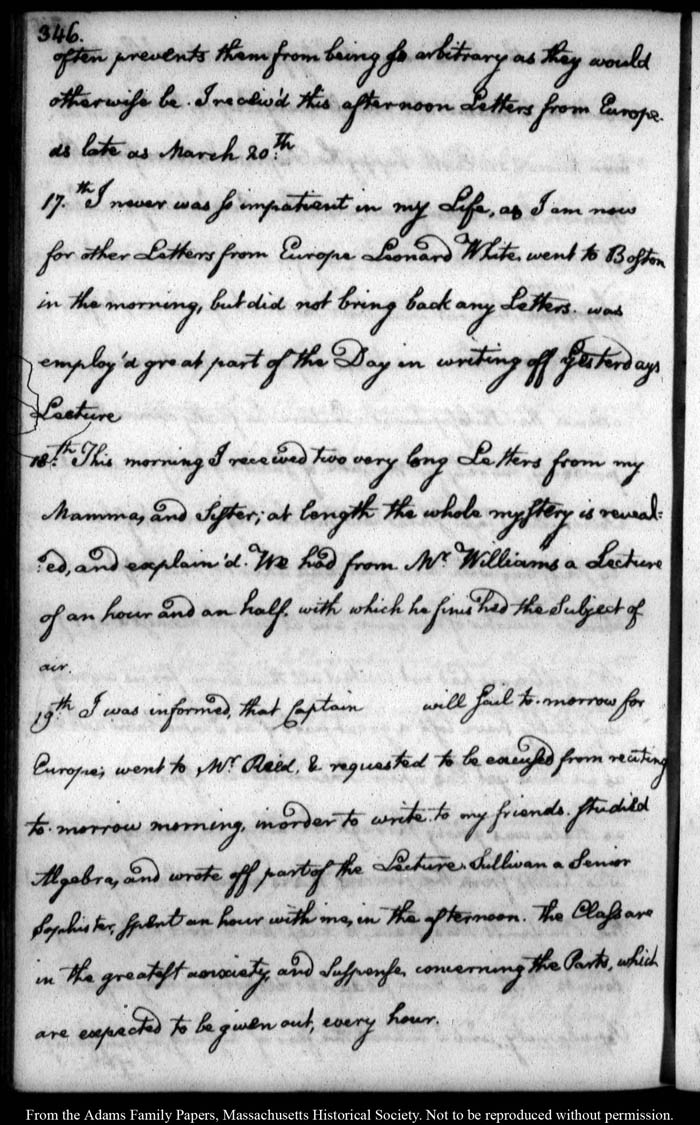 346.
often prevents them from being so arbitrary as they would
otherwise be. I receiv'd this afternoon Letters from Europe.
as late as March 20th.
17.th I never was so impatient in my Life, as I am now
for other Letters from Europe Leonard White, went to Boston
in the morning, but did not bring back any Letters. was
employ'd great part of the Day in writing off Yesterdays
Lecture
18th. This morning I received two very long Letters from my
Mamma, and Sister; at length the whole mystery is reveal=
=ed, and explain'd. We had from Mr. Williams a Lecture
of an hour and an half. with which he finished the Subject of
air.
19th. I was informed, that Captain will sail to-morrow for
Europe; went to Mr. Reed, & requested to be excused from reciting
to-morrow morning, in order to write to my friends. studied
Algebra, and wrote off part of the Lecture. Sullivan a Senior
Sophister, spent an hour with me, in the afternoon. the Class are
in the greatest anxiety, and suspense, concerning the Parts, which
are expected to be given out, every hour.
From the Adams Family Papers, Massachusetts Historical Society. Not to be reproduced without permission.